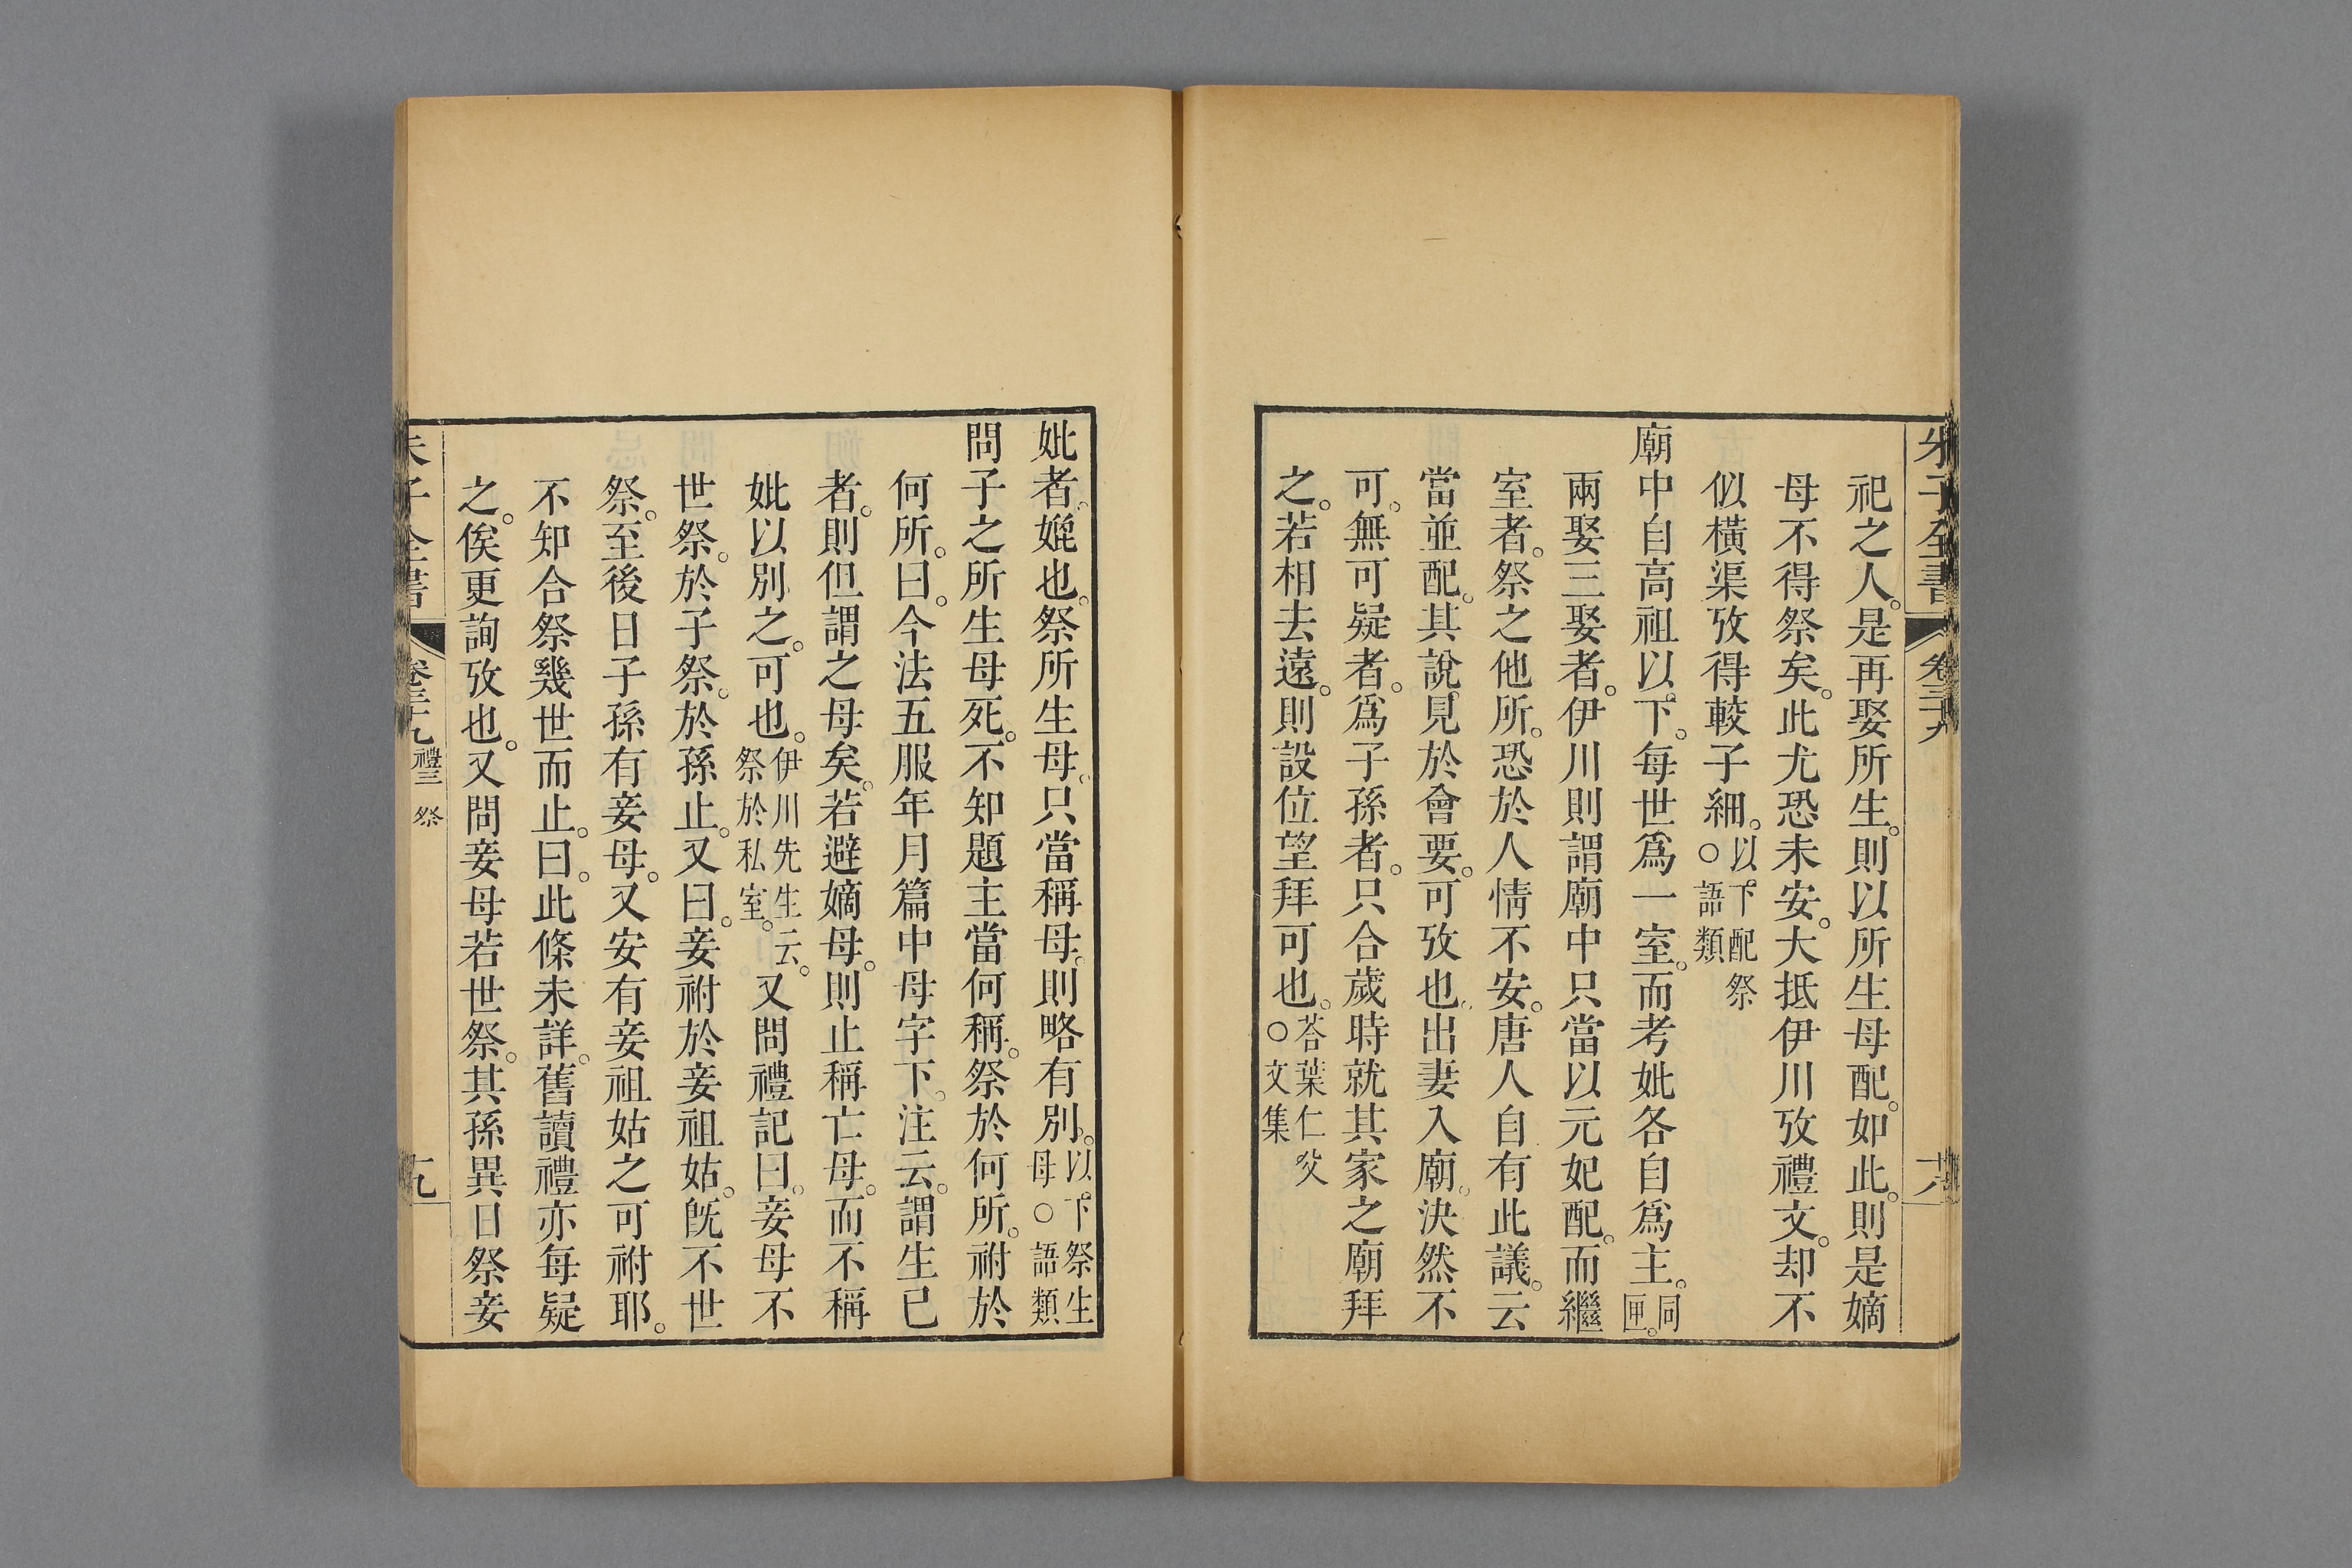 朱子全書 卷三十九 十八
祀之人。是再娶所生。則以所生母配。如此。則是嫡
母不得祭矣。此尤恐未安。大抵伊川攷禮文。却不
似橫渠攷得較子細。以下配祭○語類
廟中自高祖以下。每世爲一室。而考妣各自爲主。同匣。
兩娶三娶者。伊川則謂廟中只當以元妃配。而繼
室者。祭之他所。恐於人情不安。唐人自有此議。云
當並配。其說見於會要。可攷也。出妻入廟。決然不
可。無可疑者。爲子孫者。只合歲時就其家之廟拜
之。若相去遠。則設位望拜可也。荅葉仁父○文集
妣者。媲也。祭所生母。只當稱母。則略有別。以下祭生母○語類
問子之所生母死。不知題主當何稱。祭於何所。祔於
何所。曰。今法五服年月篇中母字下。注云。謂生己
者。則但謂之母矣。若避嫡母。則止稱亡母。而不稱
妣以別之。可也。伊川先生云。祭於私室。又問禮記曰。妾母不
世祭。於子祭。於孫止。又曰。妾祔於妾祖姑。旣不世
祭。至後日子孫有妾母。又安有妾祖姑之可祔耶。
不知合祭幾世而止。曰。此條未詳。舊讀禮亦每疑
之。俟更詢攷也。又問妾母若世祭。其孫異日祭妾
朱子全書 卷三十九 禮三 祭 十九